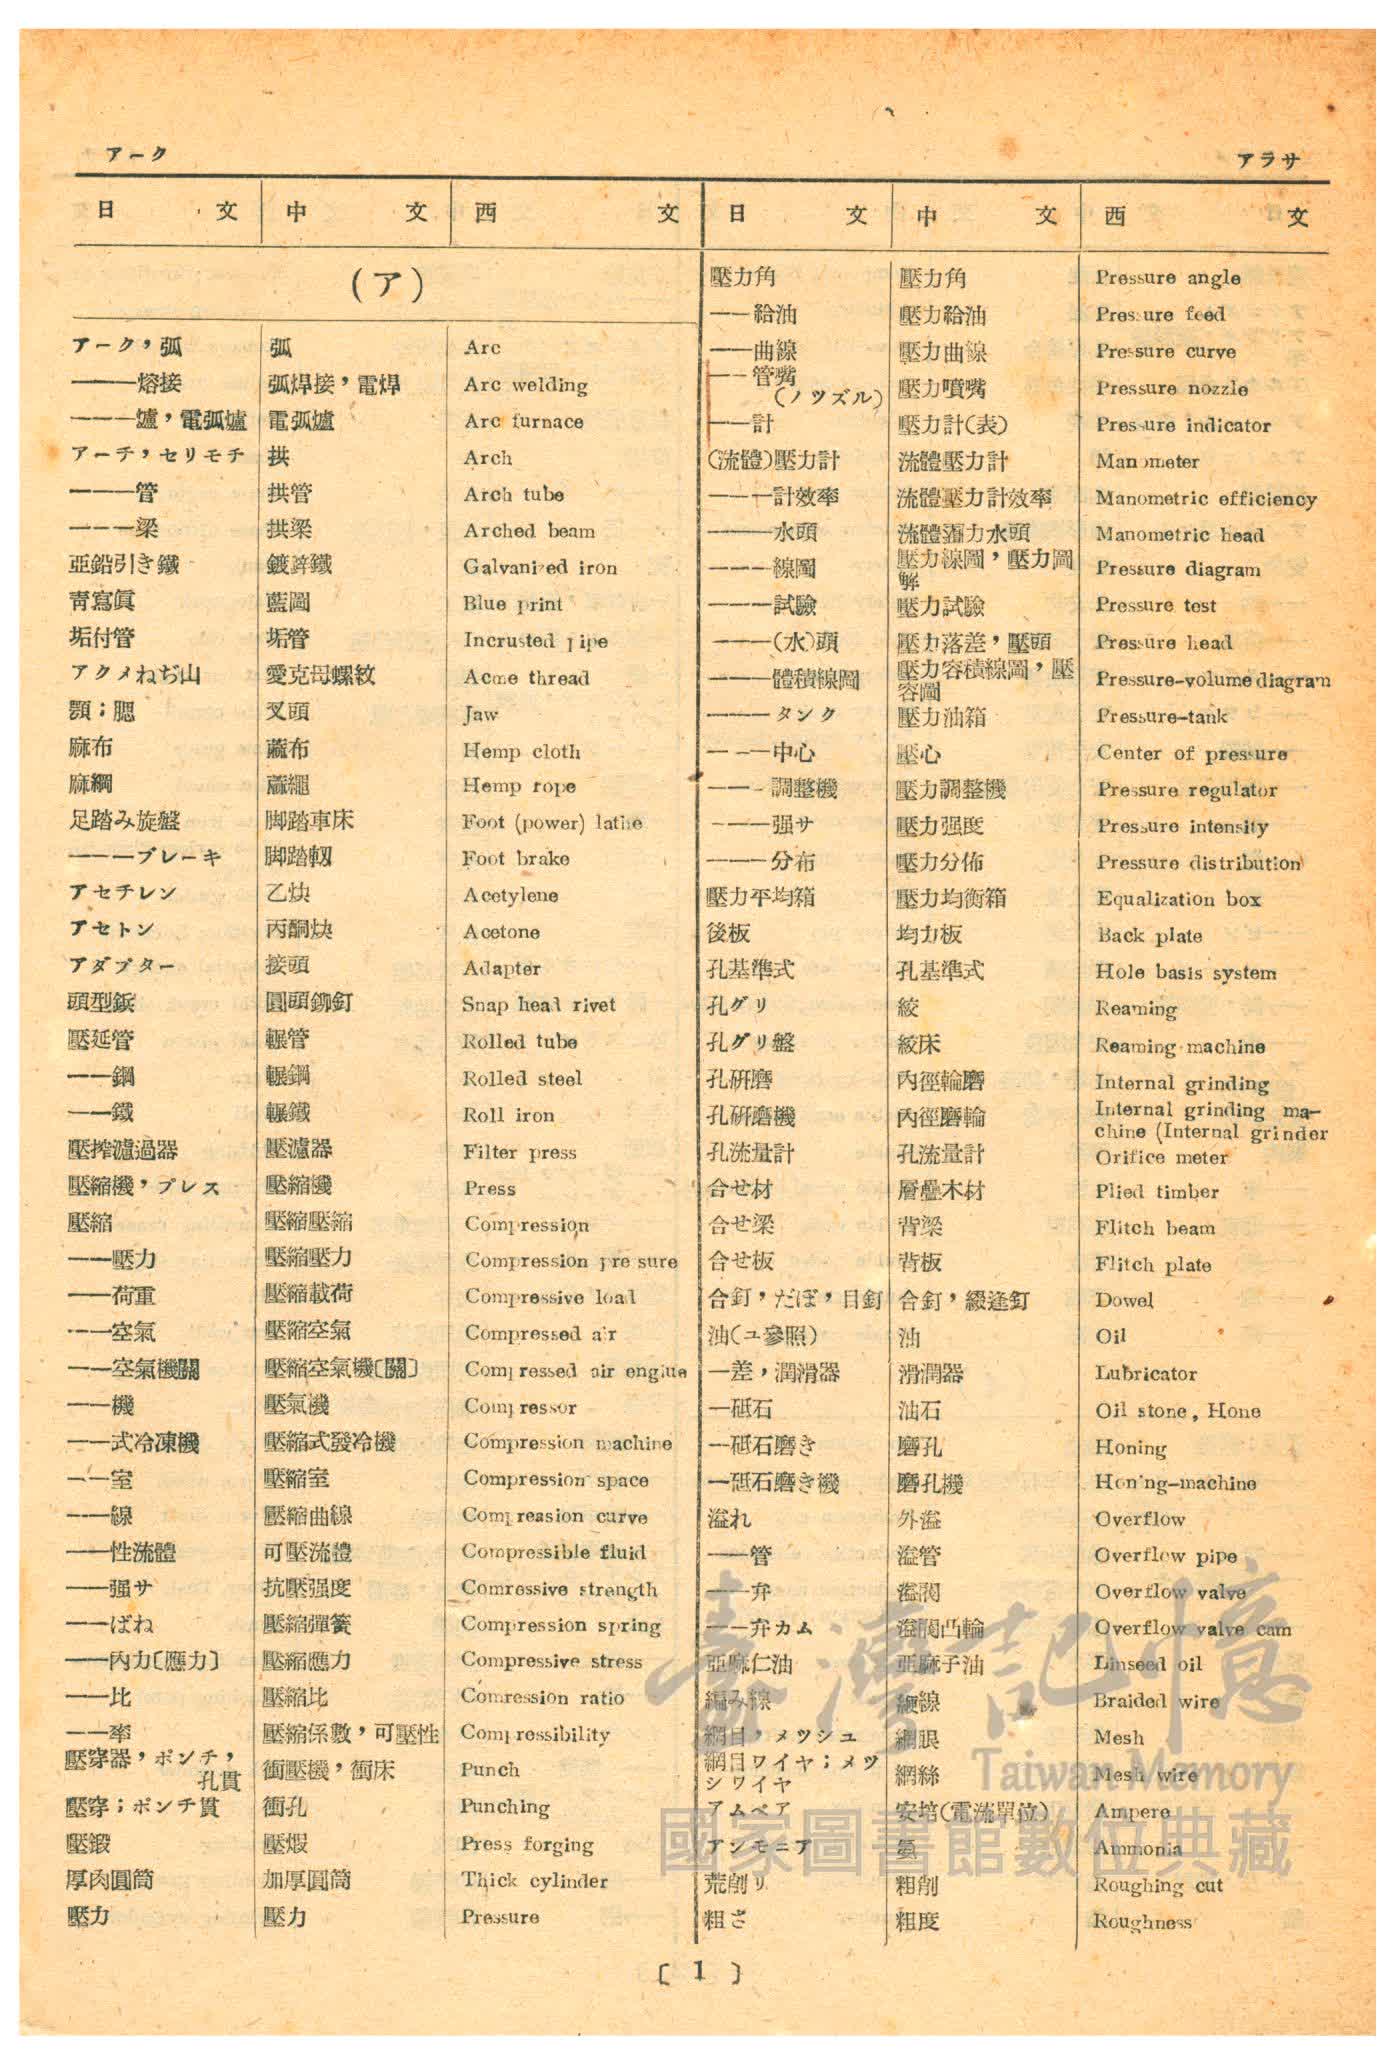 アーク
アラサ
日文 中文 西文 日文 中文 西文
(ア)
アーク，弧 弧 Arc
———熔接 弧焊接，電焊 Arc welding
———爐，電弧爐 電弧爐 Arc furnace
アーチ，セリモチ 拱 Arch
———管 拱管 Arch tube
———梁 拱梁 Arched beam
亜鉛引き鐵 鍍鋅鐵 Galvanized iron
靑寫眞 藍圖 Blue print
垢付管 垢管 Incrusted pipe
アクメねぢ山 愛克母螺紋 Acme thread
顎；腮 叉頭 Jaw
麻布 蔴布 Hemp cloth
麻綱 蔴繩 Hemp rope
足踏み旋盤 脚踏車床 Foot (power) lathe
———ブレーキ 脚踏軔 Foot brake
アセチレン 乙炔 Acetylene
アセトン 丙酮炔 Acetone
アダプター 接頭 Adapter
頭型鋲 圓頭鉚釘 Snap head rivet
壓延管 輾管 Rolled tube
——鋼 輾鋼 Rolled steel
——鐵 輾鐵 Roll iron
壓搾濾過器 壓濾器 Filter press
壓縮機，プレス 壓縮機 Press
壓縮 壓縮壓縮 Compression
——壓力 壓縮壓力 Compression pre sure
——荷重 壓縮載荷 Compressive load
——空氣 壓縮空氣 Compressed air
——空氣機關 壓縮空氣機〔關〕 Compressed air engine
——機 壓氣機 Compressor
——式冷凍機 壓縮式發冷機 Compression machine
——室 壓縮室 Compression space
——線 壓縮曲線 Compreasion curve
——性流體 可壓流體 Compressible fluid
——强サ 抗壓强度 Comressive strength
——ばね 壓縮彈簧 Compression spring
——內力〔應力〕 壓縮應力 Compressive stress
——比 壓縮比 Comression ratio
——率 壓縮係數，可壓性 Compressibility
壓穿器，ポンチ，孔貫 衝壓機，衝床 Punch
壓穿；ポンチ貫 衝孔 Punching
壓鍛 壓煅 Press forging
厚肉圓筒 加厚圓筒 Thick cylinder
壓力 壓力 Pressure
壓力角 壓力角 Pressure angle
——給油 壓力給油 Pressure feed
——曲線 壓力曲線 Pressure curve
——管嘴(ノツズル) 壓力噴嘴 Pressure nozzle
——計 壓力計(表) Pressure indicator
(流體)壓力計 流體壓力計 Manometer
———計效率 流體壓力計效率 Manometric efficiency
———水頭 流體壓力水頭 Manometric head
———線圖 壓力線圖，壓力圖解 Pressure diagram
———試驗 壓力試驗 Pressure test
———(水)頭 壓力落差，壓頭 Pressure head
———體積線圖 壓力容積線圖，壓容圖 Pressure-volume diagram
———タンク 壓力油箱 Pressure-tank
———中心 壓心 Center of pressure
———調整機 壓力調整機 Pressure regulator
———强サ 壓力强度 Pressure intensity
———分布 壓力分佈 Pressure distribution
壓力平均箱 壓力均衡箱 Equalization box
後板 均力板 Back plate
孔基準式 孔基準式 Hole basis system
孔グリ 絞 Reaming
孔グリ盤 絞床 Reaming machine
孔硏磨 內徑輪磨 Internal grinding
孔硏磨機 內徑磨輪 Internal grinding ma-
chine (Internal grinder
孔流量計 孔流量計 Orifice meter
合せ材 層疊木材 Plied timber
合せ梁 背梁 Flitch beam
合せ板 背板 Flitch plate
合釘，だぼ，目釘 合釘，綴逢釘 Dowel
油(ユ參照) 油 Oil
—差，潤滑器 滑潤器 Lubricator
—砥石 油石 Oil stone, Hone
—砥石磨き 磨孔 Honing
—砥石磨き機 磨孔機 Honing-machine
溢れ 外溢 Overflow
——管 溢管 Overflow pipe
——弁 溢閥 Overflow valve
——弁カム 溢閥凸輪 Overflow valve cam
亜麻仁油 亜麻子油 Linseed oil
編み線 緶線 Braided wire
網目，メツシユ 網眼 Mesh
網目ワイヤ；メツシワイヤ 網絲 Mesh wire
アムペア 安培(電流單位) Ampere
アンモニア 氨 Ammonia
荒削リ 粗削 Roughing cut
粗さ 粗度 Roughness
〔 1 〕
臺灣記憶
Taiwan Memory
國家圖書館數位典藏